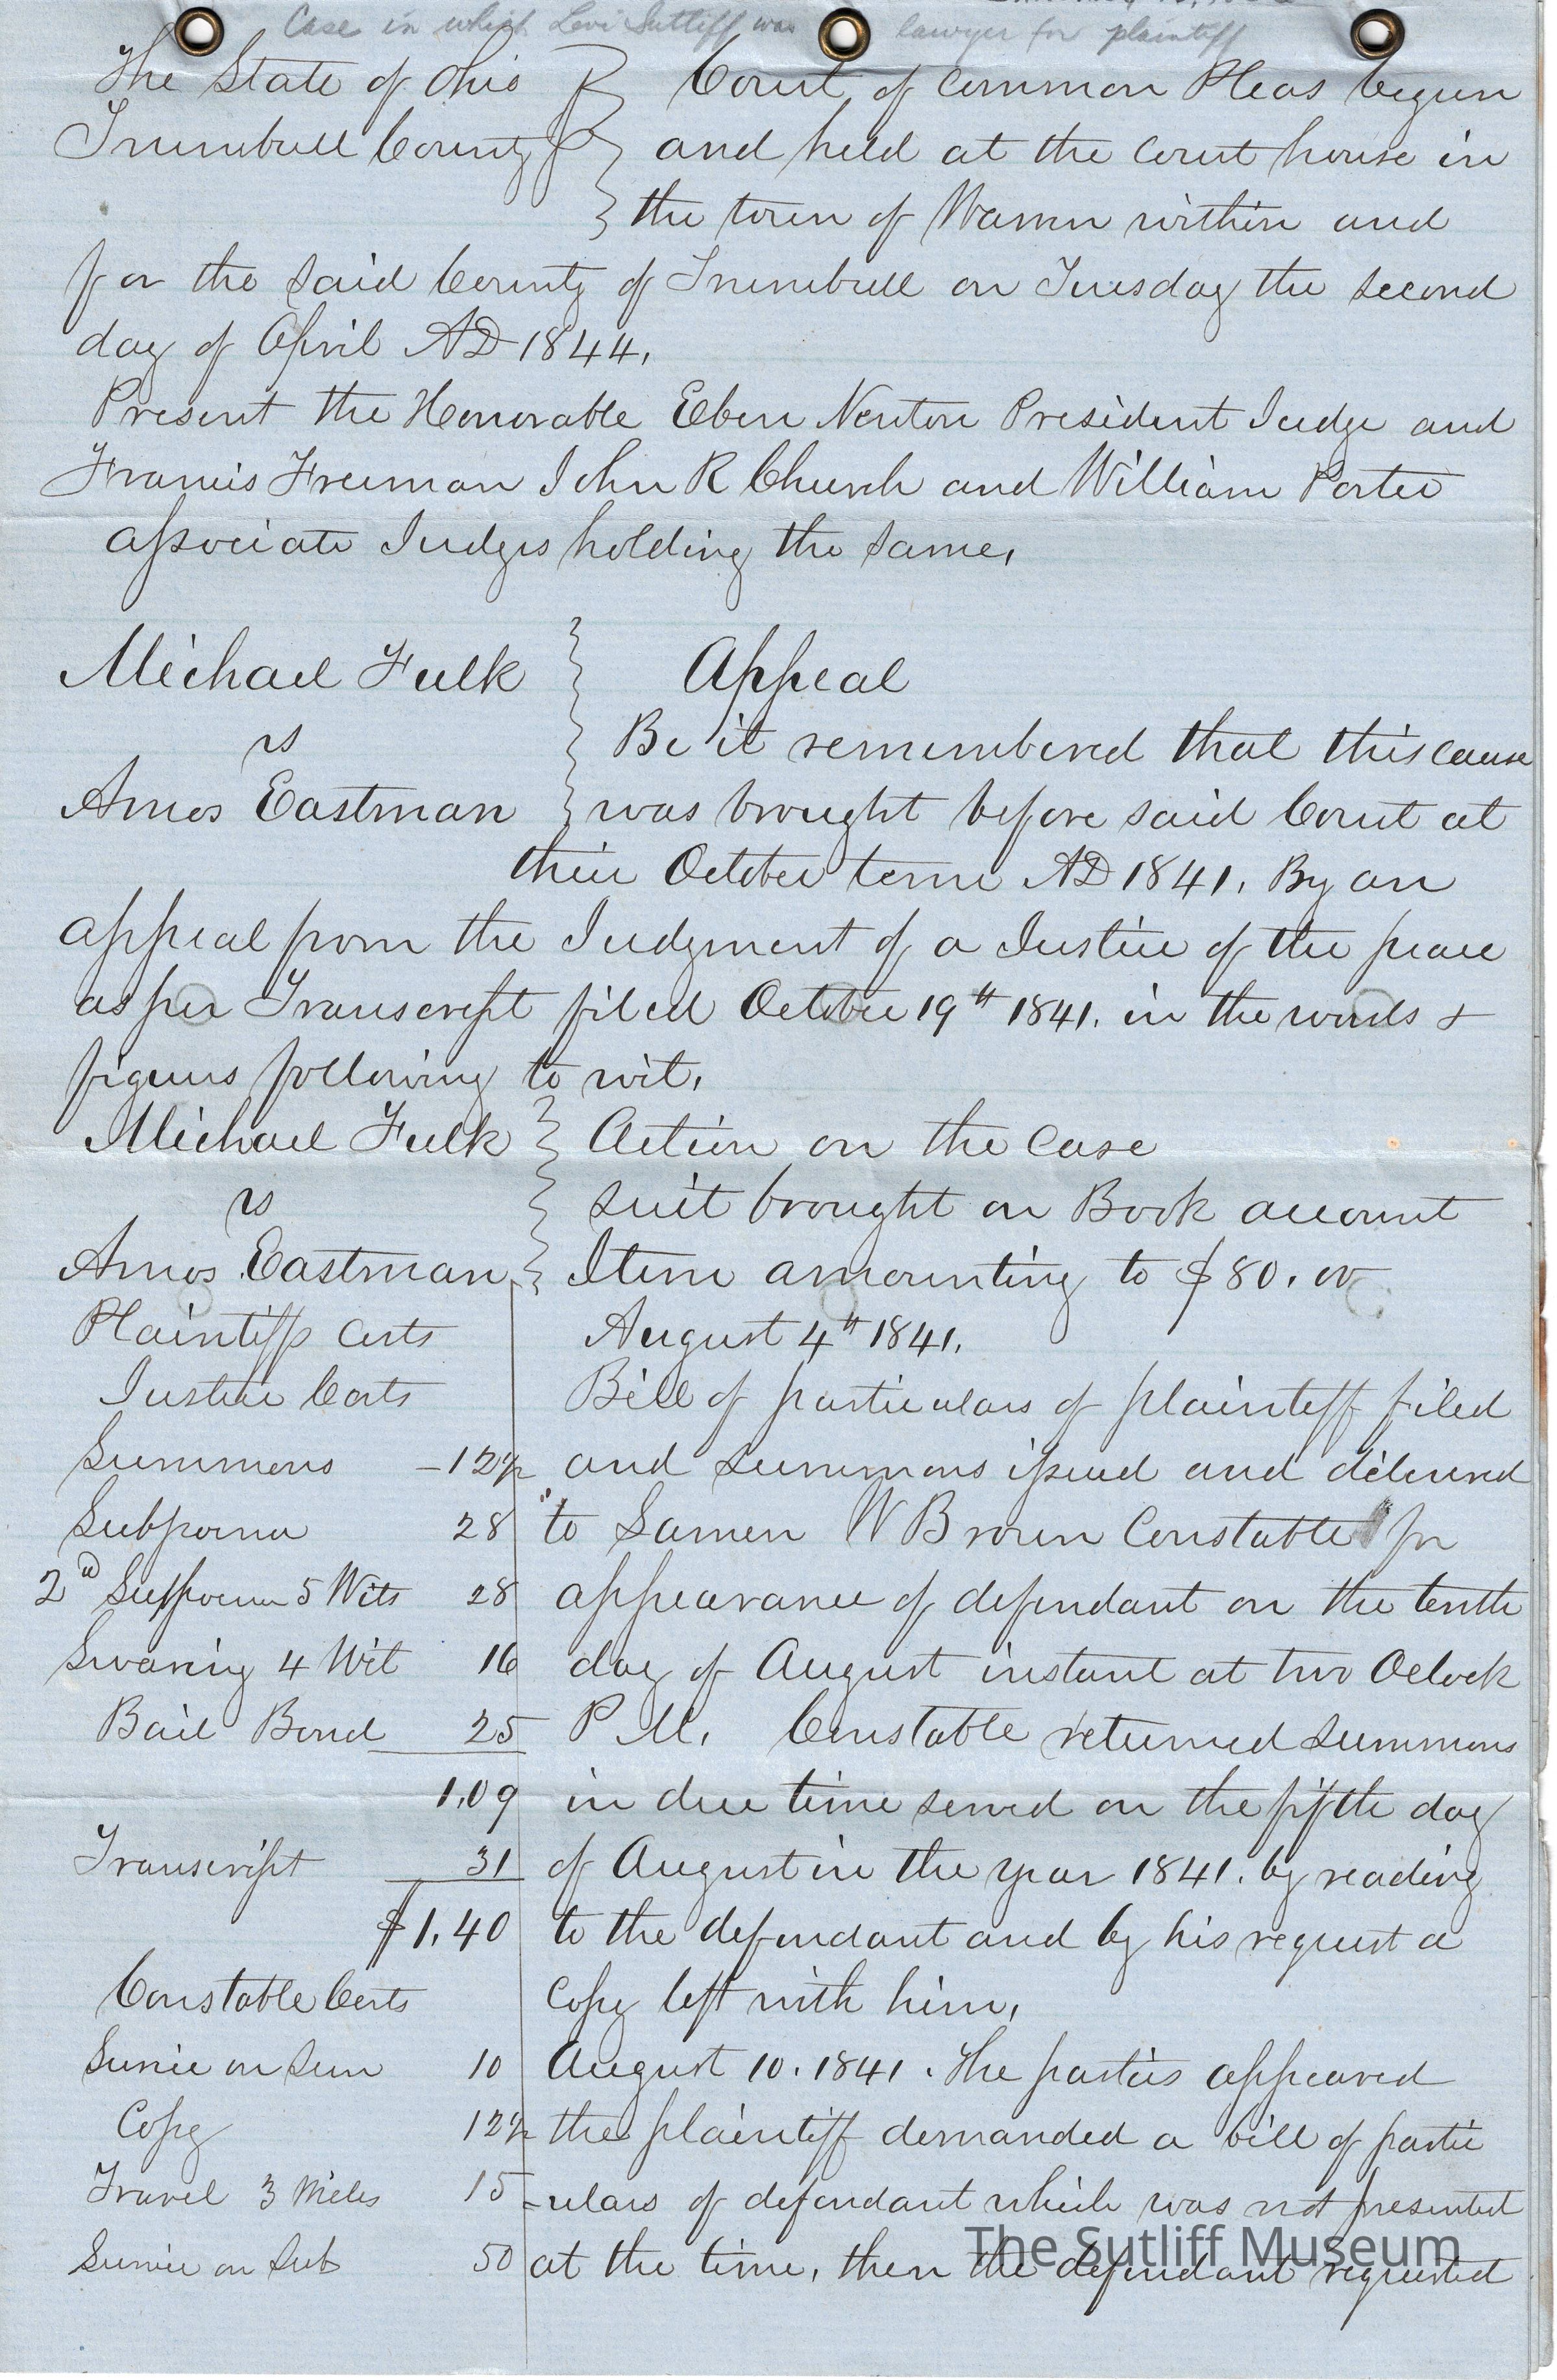 Case in which Levi Sutliff was lawyer for plaintiff
The State of Ohio Court of Common Pleas begun
Trumbull County and held at the Court house in
the town of Warren within and
for the said County of Trumbull on Tuesday the second
day of April AD 1844.
Present the Honorable Eben Newton President Judge and
Francis Freeman John R Church and William Porter
associate Judges holding the same,
Michael Fulk Appeal
vs Be it remembered that this cause
Amos Eastman was brought before said Court at
their October term AD 1841. By an
appeal from the Judgment of a Justice of the peace
as per Transcript filed October 19th 1841. in the words &
figures following to wit,
Michael Fulk Action on the Case
vs suit brought on Book account
Amos Eastman Item amounting to $80.00
Plaintiffs Costs August 4th 1841.
Justice Costs Bill of particulars of plaintiff filed
Summons 12½ and summons issued and delivered
Subpoena 28 to W Brown Constable for
2d Suppoena 5 Wits 28 appearance of defendant on the tenth
Swaring 4 Wit 16 day of August instant at two Oclock
Bail Bond 25 P M. Constable returned summons
1.09 in due time served on the fifth day
Transcript 31 of August in the year 1841. by reading
$1.40 to the defendant and by his request a
Constable Costs Copy left with him,
Service on Sum 10 August 10. 1841. The parties appeared
Copy 12½ the plaintiff demanded a bill of partic
Travel 3 Miles 15 -ulars of defendant which was not presented
Service on Sub 50 at the time, then the defendant requested
The Sutliff Museum